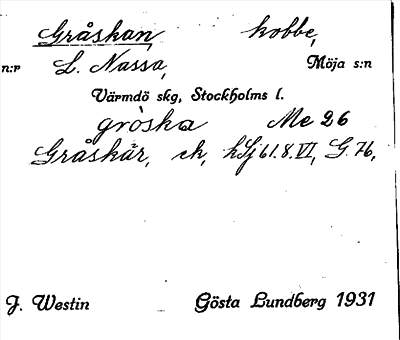 Gråskan, kobbe,
n:r L. Nassa, Möja s:n
Värmdö skg, Stockholms l.
grò̀ska Me 26
Gråskär, ek, hSj 61.8.VI, G. 76,
J. Westin Gösta Lundberg 1931